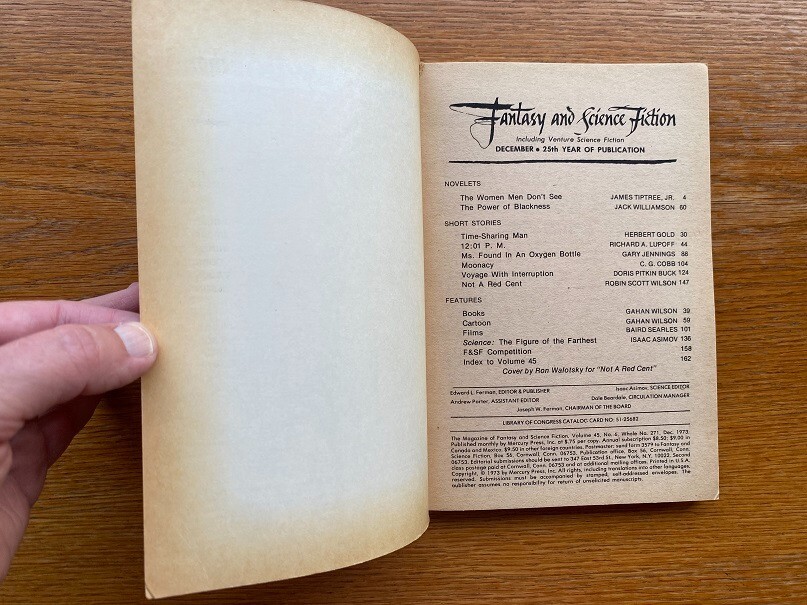 Fantasy and Science Fiction
Including Venture Science Fiction
DECEMBER • 25th YEAR OF PUBLICATION
NOVELETS
The Women Men Don't See JAMES TIPTREE, JR. 4
The Power of Blackness JACK WILLIAMSON 60
SHORT STORIES
Time-Sharing Man HERBERT GOLD 30
12:01 P. M. RICHARD A. LUPOFF 44
Ms. Found In An Oxygen Bottle GARY JENNINGS 88
Moonacy C. G. COBB 104
Voyage With Interruption DORIS PITKIN BUCK 124
Not A Red Cent ROBIN SCOTT WILSON 147
FEATURES
Books GAHAN WILSON 39
Cartoon GAHAN WILSON 59
Films BAIRD SEARLES 101
Science: The Figure of the Farthest ISAAC ASIMOV 136
F&SF Competition 158
Index to Volume 45 162
Cover by Ron Walotsky for "Not A Red Cent"
Edward L. Ferman, EDITOR & PUBLISHER Isaac Asimov, SCIENCE EDITOR
Andrew Porter, ASSISTANT EDITOR Dale Beardale, CIRCULATION MANAGER
Joseph W. Ferman, CHAIRMAN OF THE BOARD
LIBRARY OF CONGRESS CATALOG CARD NO: 51-25682
The Magazine of Fantasy and Science Fiction, Volume 45, No. 6, Whole No. 271, Dec. 1973.
Published monthly by Mercury Press, Inc. at $.75 per copy. Annual subscription $8.50; $9.00 in
Canada and Mexico, $9.50 in other foreign countries. Postmaster: send form 3579 to Fantasy and
Science Fiction, Box 56, Cornwall, Conn. 06753. Publication office, Box 56, Cornwall, Conn.
06753. Editorial submissions should be sent to 347 East 53rd St., New York, N.Y. 10022. Second
class postage paid at Cornwall, Conn. 06753 and at additional mailing offices. Printed in U.S.A.
Copyright, © 1973 by Mercury Press, Inc. All rights, including translations into other languages,
reserved. Submissions must be accompanied by stamped, self-addressed envelopes. The
publisher assumes no responsibility for return of unsolicited manuscripts.